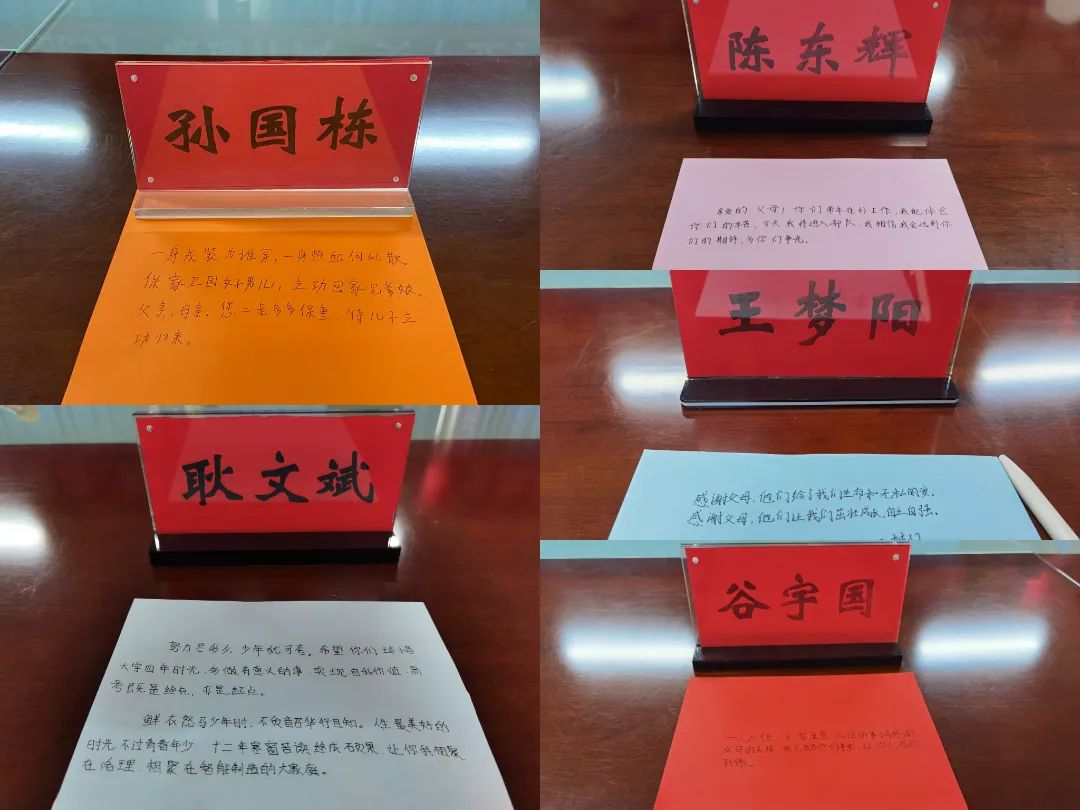 孙国栋
一身戎装为谁穿,一身热血何处散。
保家卫国好男儿,立功回家见爹娘。
父亲,母亲,您二老多多保重,待儿子立
功归来。
陈东辉
亲爱的父母,你们常年在外工作,我能体会
你们的辛苦,今天我将进入部队,我相信我会达到你
们的期待,为你们争光。
王梦阳
感谢父母,他们给了我们生命和无私的爱。
感谢父母,他们让我们茁壮成长,自立自强。
耿文斌
努力尽多少,少年犹可卷。希望你们珍惜
大学四年时光,多做有意义的事,实现自我价值,高
考既是终点,亦是起点。
鲜衣怒马少年时,不负韶华行且知。人生最美好的
时光不过青春年少 十二年寒窗苦读终成硕果,让你我相聚
在洛理,相聚在智能制造的大家庭。
谷宇国
一人入伍 全家光荣